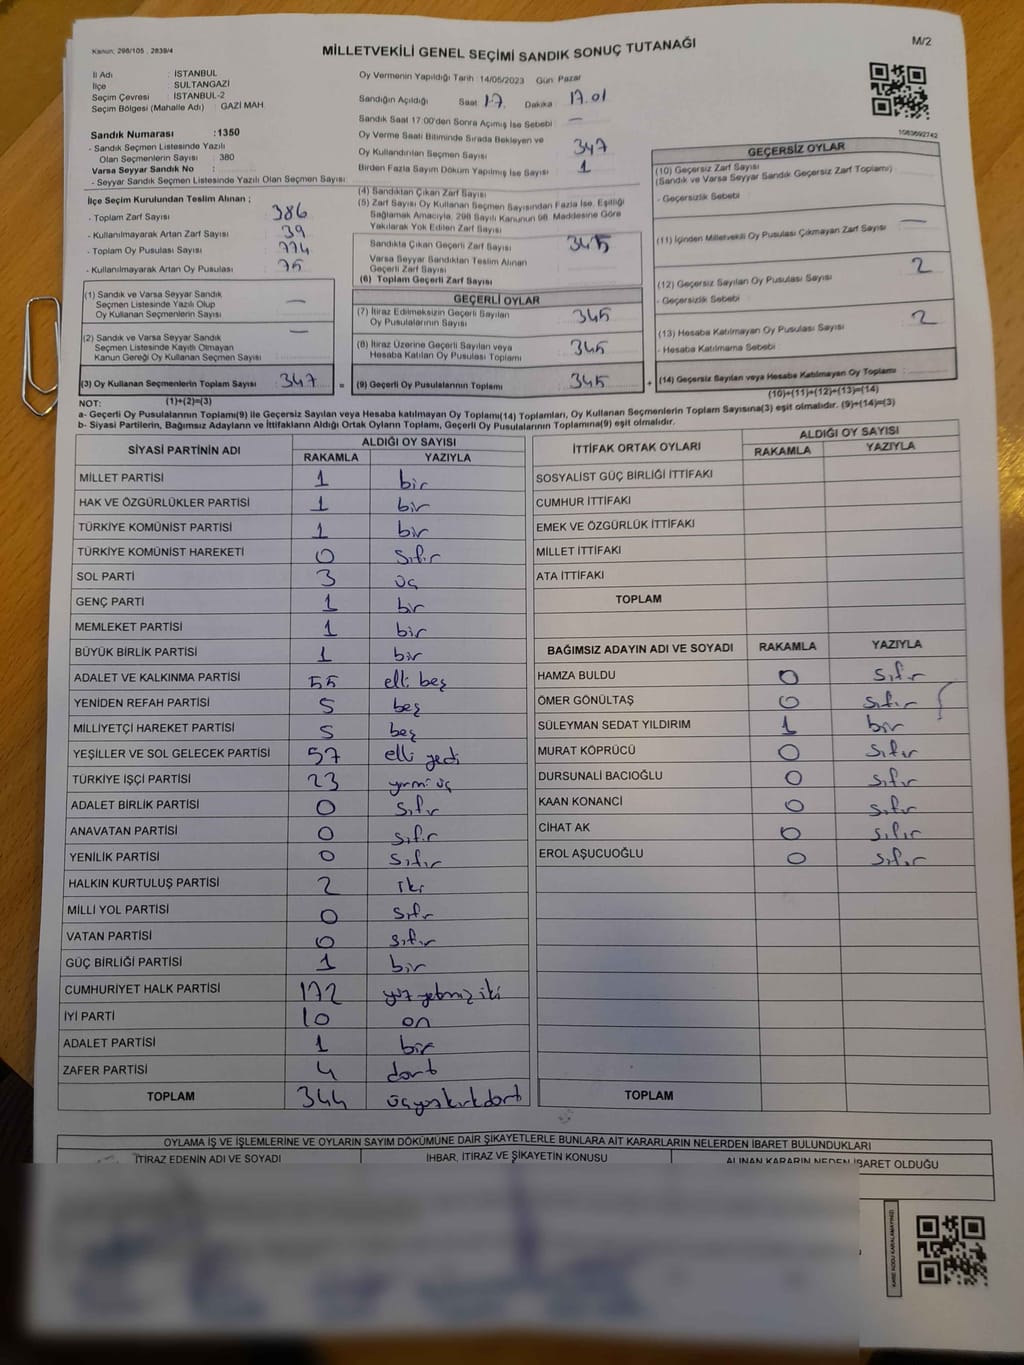 Kanun: 298/105 , 2839/4
MİLLETVEKİLİ GENEL SEÇİMİ SANDIK SONUÇ TUTANAĞI
M/2
İl Adı : İSTANBUL
İlçe : SULTANGAZİ
Seçim Çevresi : İSTANBUL-2
Seçim Bölgesi (Mahalle Adı) : GAZİ MAH
Sandık Numarası :1350
- Sandık Seçmen Listesinde Yazılı
Olan Seçmenlerin Sayısı : 380
Varsa Seyyar Sandık No :
- Seyyar Sandık Seçmen Listesinde Yazılı Olan Seçmen Sayısı:
Oy Vermenin Yapıldığı Tarih :14/05/2023 Gün Pazar
Sandığın Açıldığı Saat 17. Dakika : 17.01
Sandık Saat 17:00'den Sonra Açılmış İse Sebebi : —
Oy Verme Saati Bitiminde Sırada Bekleyen ve
Oy Kullandırılan Seçmen Sayısı 347
Birden Fazla Sayım Döküm Yapılmış İse Sayısı : 1
1083692742
İlçe Seçim Kurulundan Teslim Alınan ;
- Toplam Zarf Sayısı : 386
- Kullanılmayarak Artan Zarf Sayısı : 39
- Toplam Oy Pusulası Sayısı : 774
- Kullanılmayarak Artan Oy Pusulası : 75
(1) Sandık ve Varsa Seyyar Sandık
Seçmen Listesinde Yazılı Olup
Oy Kullanan Seçmenlerin Sayısı : —
(2) Sandık ve Varsa Seyyar Sandık
Seçmen Listesinde Kayıtlı Olmayan
Kanun Gereği Oy Kullanan Seçmen Sayısı : —
(3) Oy Kullanan Seçmenlerin Toplam Sayısı : 347 =
(1)+(2)=(3)
(4) Sandıktan Çıkan Zarf Sayısı
(5) Zarf Sayısı Oy Kullanan Seçmen Sayısından Fazla İse, Eşitliği
Sağlamak Amacıyla, 298 Sayılı Kanunun 98. Maddesine Göre
Yakılarak Yok Edilen Zarf Sayısı
Sandıkta Çıkan Geçerli Zarf Sayısı 345
Varsa Seyyar Sandıktan Teslim Alınan
Geçerli Zarf Sayısı
(6) Toplam Geçerli Zarf Sayısı
GEÇERLİ OYLAR
(7) İtiraz Edilmeksizin Geçerli Sayılan
Oy Pusulalarının Sayısı : 345
(8) İtiraz Üzerine Geçerli Sayılan veya
Hesaba Katılan Oy Pusulası Toplamı : 345
(9) Geçerli Oy Pusulalarının Toplamı : 345 +
GEÇERSİZ OYLAR
(10) Geçersiz Zarf Sayısı
(Sandık ve Varsa Seyyar Sandık Geçersiz Zarf Toplamı) :
- Geçersizlik Sebebi :
(11) İçinden Milletvekili Oy Pusulası Çıkmayan Zarf Sayısı : —
(12) Geçersiz Sayılan Oy Pusulası Sayısı : 2
- Geçersizlik Sebebi :
(13) Hesaba Katılmayan Oy Pusulası Sayısı : 2
- Hesaba Katılmama Sebebi :
(14) Geçersiz Sayılan veya Hesaba Katılmayan Oy Toplamı :
(10)+(11)+(12)+(13)=(14)
NOT:
a- Geçerli Oy Pusulalarının Toplamı(9) ile Geçersiz Sayılan veya Hesaba katılmayan Oy Toplamı(14) Toplamları, Oy Kullanan Seçmenlerin Toplam Sayısına(3) eşit olmalıdır. (9)+(14)=(3)
b- Siyasi Partilerin, Bağımsız Adayların ve İttifakların Aldığı Ortak Oyların Toplamı, Geçerli Oy Pusulalarının Toplamına(9) eşit olmalıdır.
SİYASİ PARTİNİN ADI ALDIĞI OY SAYISI
RAKAMLA YAZIYLA
MİLLET PARTİSİ 1 bir
HAK VE ÖZGÜRLÜKLER PARTİSİ 1 bir
TÜRKİYE KOMÜNİST PARTİSİ 1 bir
TÜRKİYE KOMÜNİST HAREKETİ 0 sıfır
SOL PARTİ 3 üç
GENÇ PARTİ 1 bir
MEMLEKET PARTİSİ 1 bir
BÜYÜK BİRLİK PARTİSİ 1 bir
ADALET VE KALKINMA PARTİSİ 55 elli beş
YENİDEN REFAH PARTİSİ 5 beş
MİLLİYETÇİ HAREKET PARTİSİ 5 beş
YEŞİLLER VE SOL GELECEK PARTİSİ 57 elli yedi
TÜRKİYE İŞÇİ PARTİSİ 23 yirmi üç
ADALET BİRLİK PARTİSİ 0 sıfır
ANAVATAN PARTİSİ 0 sıfır
YENİLİK PARTİSİ 0 sıfır
HALKIN KURTULUŞ PARTİSİ 2 iki
MİLLİ YOL PARTİSİ 0 sıfır
VATAN PARTİSİ 0 sıfır
GÜÇ BİRLİĞİ PARTİSİ 1 bir
CUMHURİYET HALK PARTİSİ 172 yüz yetmiş iki
İYİ PARTİ 10 on
ADALET PARTİSİ 1 bir
ZAFER PARTİSİ 4 dört
TOPLAM 344 üçyüzkırkdört
İTTİFAK ORTAK OYLARI ALDIĞI OY SAYISI
RAKAMLA YAZIYLA
SOSYALİST GÜÇ BİRLİĞİ İTTİFAKI
CUMHUR İTTİFAKI
EMEK VE ÖZGÜRLÜK İTTİFAKI
MİLLET İTTİFAKI
ATA İTTİFAKI
TOPLAM
BAĞIMSIZ ADAYIN ADI VE SOYADI RAKAMLA YAZIYLA
HAMZA BULDU 0 sıfır
ÖMER GÖNÜLTAŞ 0 sıfır
SÜLEYMAN SEDAT YILDIRIM 1 bir
MURAT KÖPRÜCÜ 0 sıfır
DURSUNALİ BACIOĞLU 0 sıfır
KAAN KONANCİ 0 sıfır
CİHAT AK 0 sıfır
EROL AŞUCUOĞLU 0 sıfır
TOPLAM
OYLAMA İŞ VE İŞLEMLERİNE VE OYLARIN SAYIM DÖKÜMÜNE DAİR ŞİKAYETLERLE BUNLARA AİT KARARLARIN NELERDEN İBARET BULUNDUKLARI
İTİRAZ EDENİN ADI VE SOYADI İHBAR, İTİRAZ VE ŞİKAYETİN KONUSU ALINAN KARARIN NEDEN İBARET OLDUĞU
KARE KODU KARALAMAYINIZ!